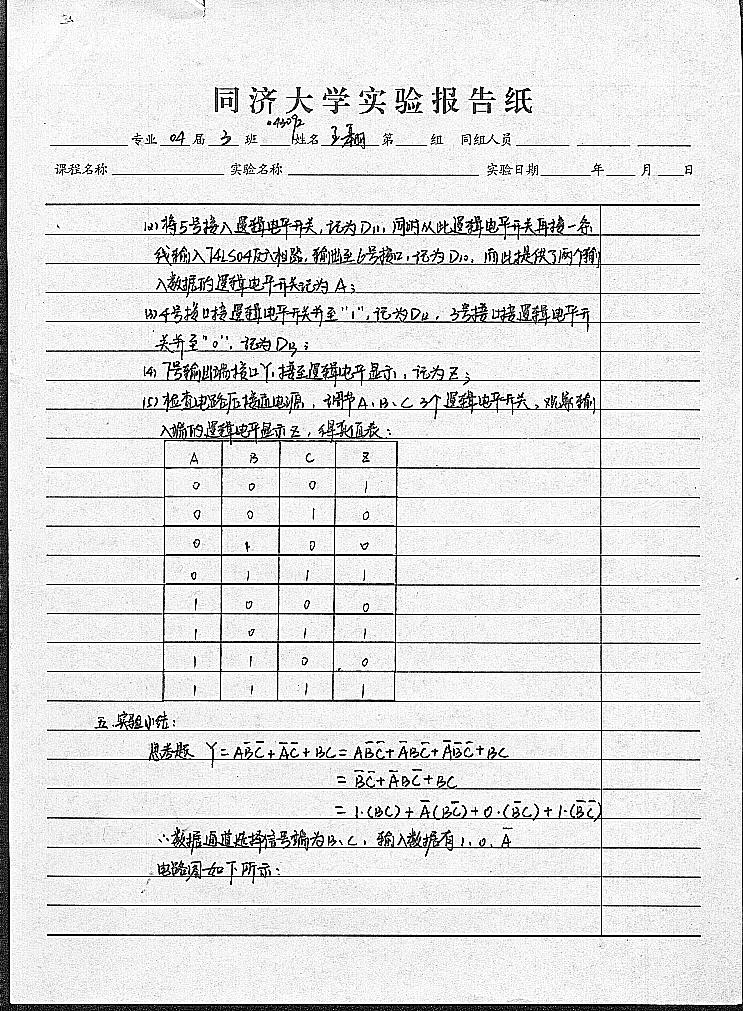 同济大学实验报告纸
043092
专业 04 届 3 班 姓名 王 第 组 同组人员
课程名称 实验名称 实验日期 年 月 日
(2) 将5号接入逻辑电平开关,记为D11,同时从此逻辑电平开关再接一条
线输入74LS04反相器,输出至6号接口,记为D10,而此提供了两个输
入数据的逻辑电平开关记为A;
(3) 4号接口接逻辑电平开关并至"1",记为D12,3号接口接逻辑电平开
关并至"0",记为D13;
(4) 7号输出端接口Y,接至逻辑电平显示,记为Z;
(5) 检查电路后接通电源,调节A、B、C 3个逻辑电平开关,观察输
入端的逻辑电平显示Z,得真值表:
A B C Z
0 0 0 1
0 0 1 0
0 1 0 0
0 1 1 1
1 0 0 0
1 0 1 1
1 1 0 0
1 1 1 1
五.实验小结:
思考题 Y=AB̅C̅+A̅C̅+BC=AB̅C̅+A̅BC̅+A̅B̅C̅+BC
=B̅C̅+A̅BC̅+BC
=1·(BC)+A̅(BC̅)+0·(B̅C)+1·(B̅C̅)
∴数据通道选择信号端为B、C,输入数据有1、0、A̅
电路图如下所示: